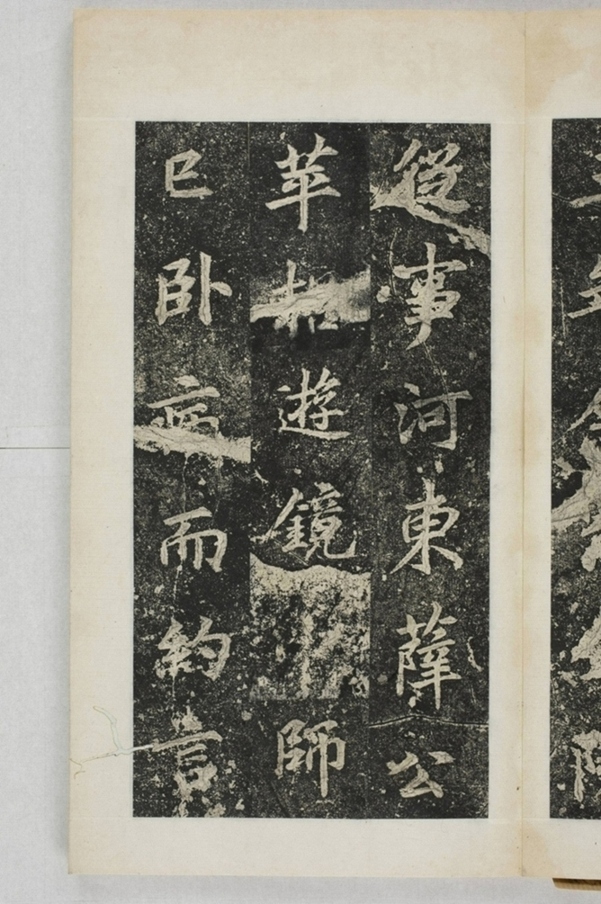 從事河東薛公
苹相遊鏡師
已卧病而約言